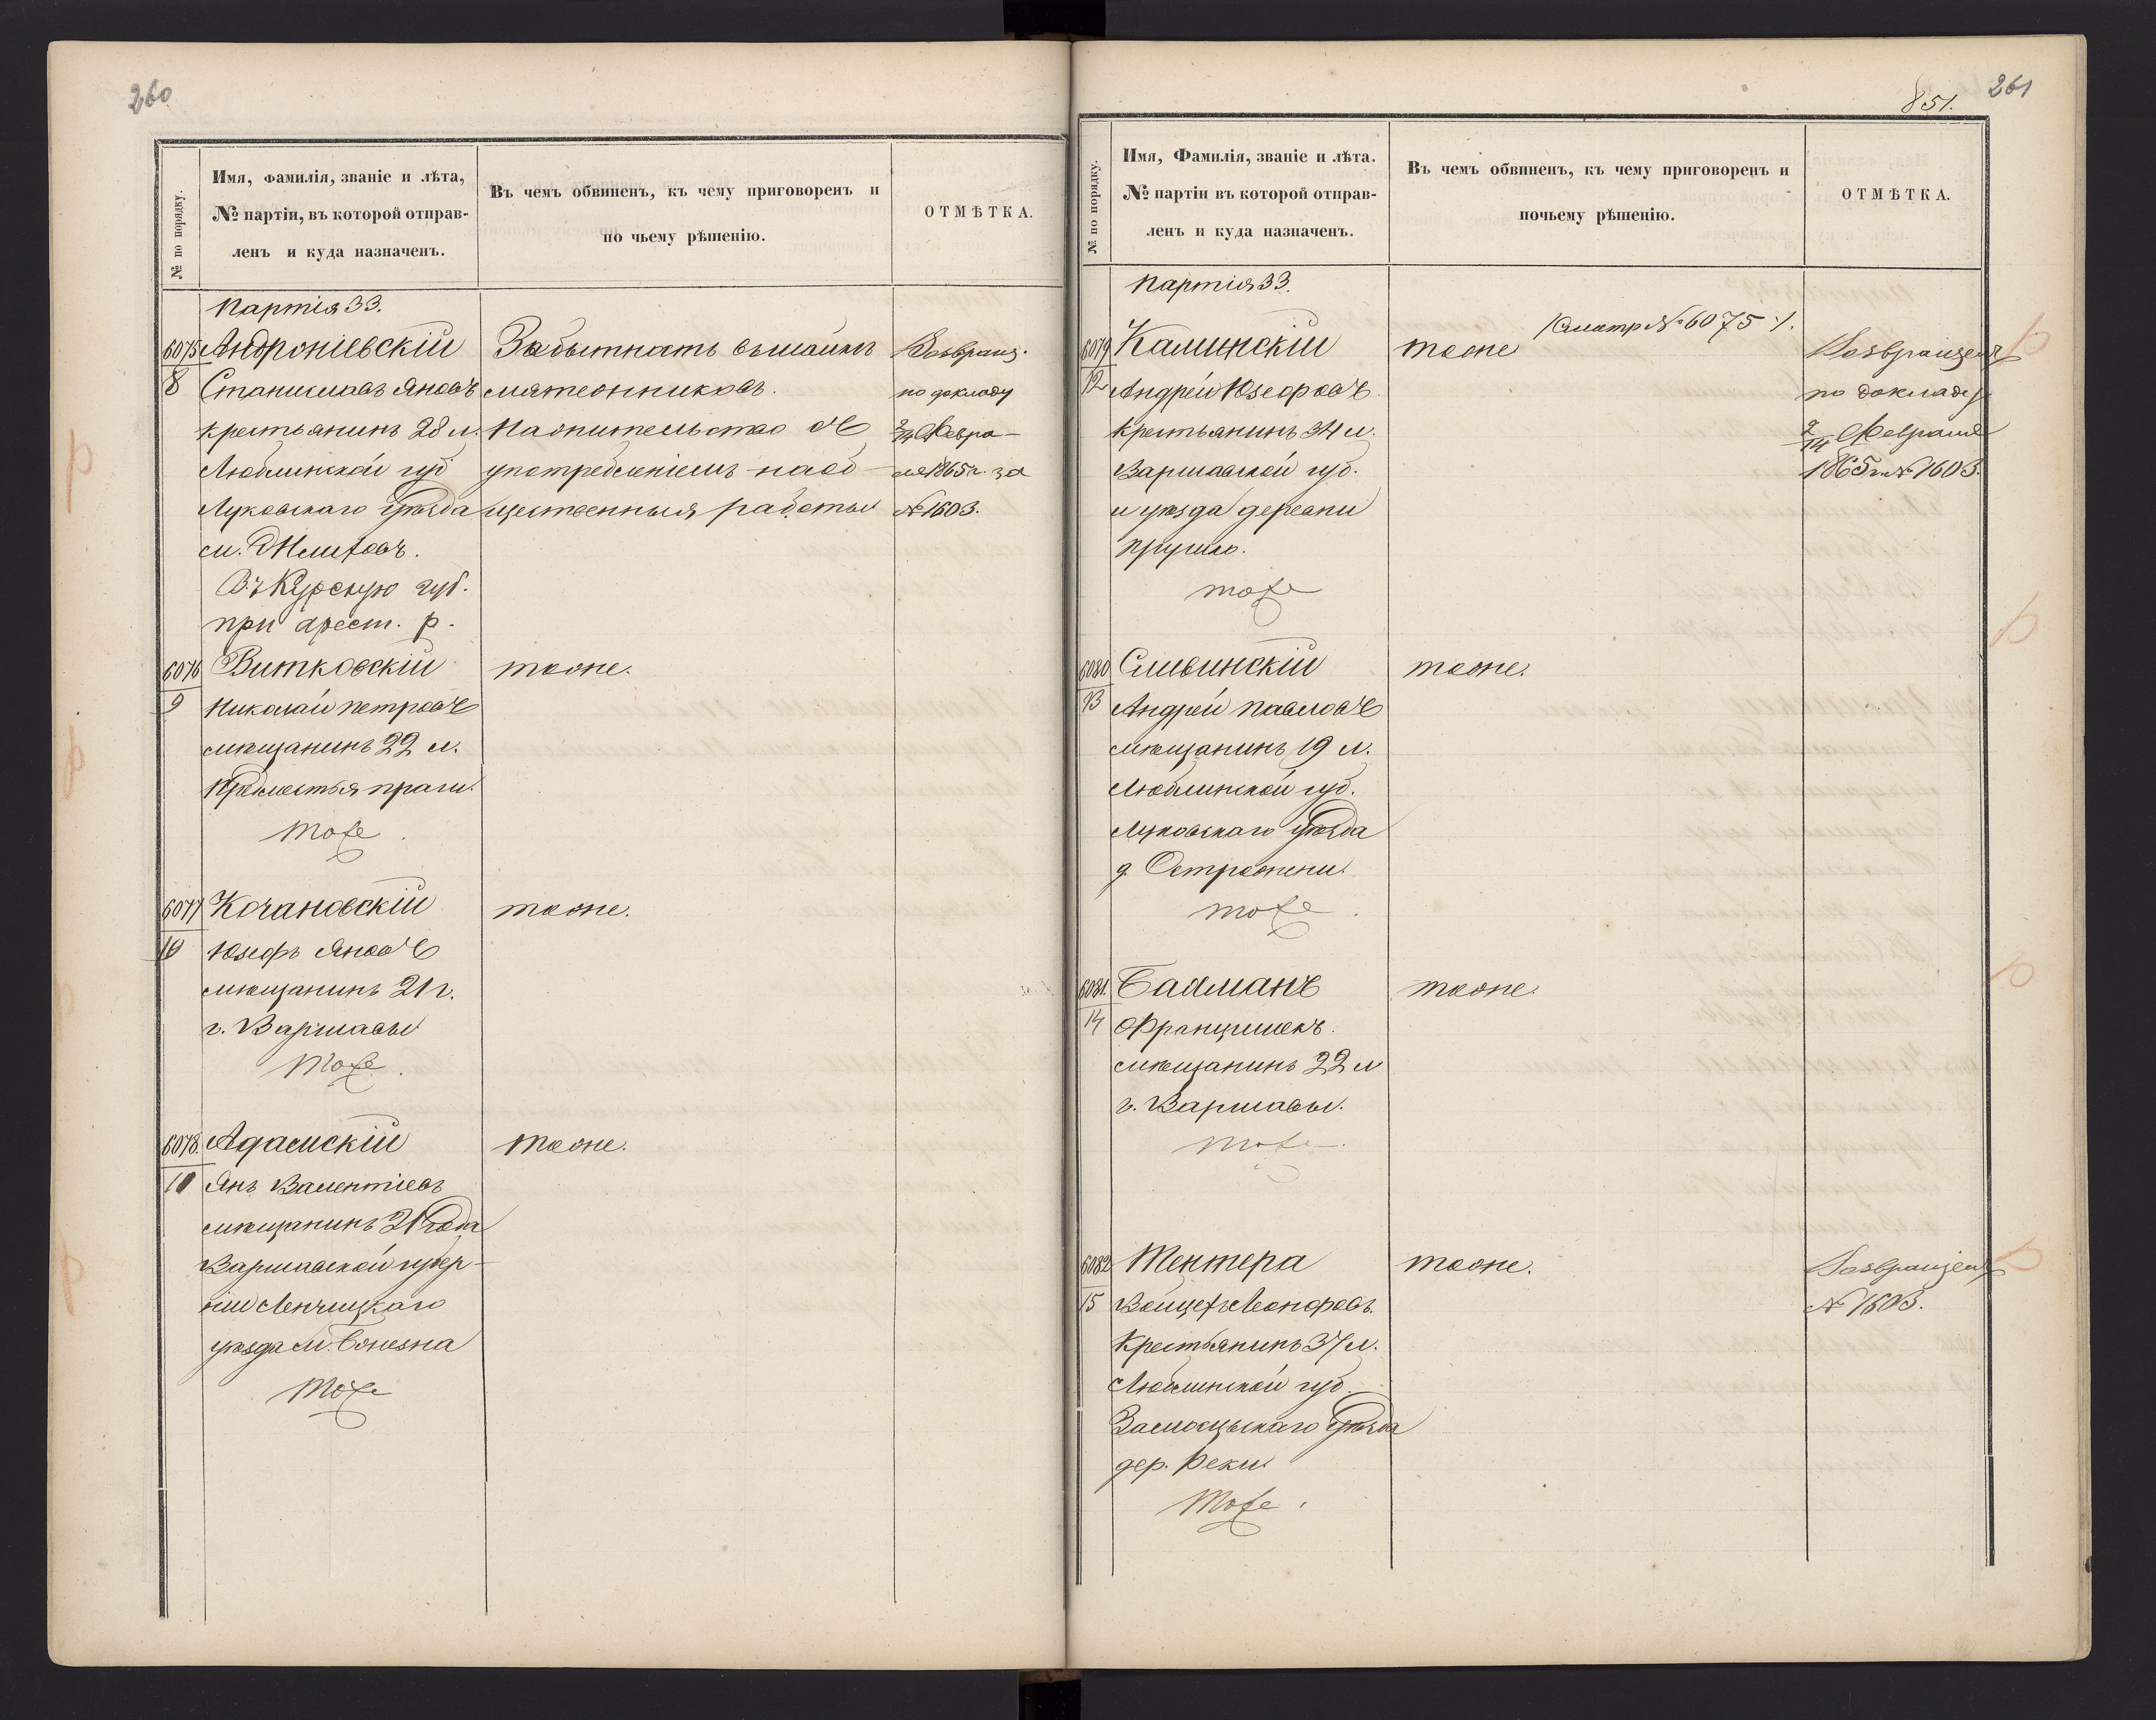 260
№ по порядку.
Имя, фамилія, званіе и лѣта,
№ партіи, въ которой отправ-
ленъ и куда назначенъ.
Въ чемъ обвиненъ, къ чему приговоренъ и
по чьему рѣшенію.
ОТМѢТКА.
Партія 33.
6075
8
Андроніевскій
Станиславъ Яновъ
крестьянинъ 28 л.
Люблинской губ
Луковскаго уѣзда
м.
Въ Курскую губ.
при арест. р.
За бытность въ шайкѣ
мятежниковъ.
На жительство съ
употребленіемъ на об-
щественныя работы
Возвращ.
по докладу
2/14 Февра-
ля 1865 г. за
№ 1603.
6076
9
Витковскій
Николай Петровъ
мѣщанинъ 22 л.
Предмѣстья Праги.
тоже.
тоже.
6077
10
Кочановскій
Юзефъ Яновъ
мѣщанинъ 21 г.
г. Варшавы
тоже.
тоже.
6078.
11
Адамскій
Янъ Валентіевъ
мѣщанинъ 21 года
Варшавской губер-
ніи Ленчицкаго
уѣзда м.
тоже
тоже.
261
851.
№ по порядку.
Имя, Фамилія, званіе и лѣта.
№ партіи въ которой отправ-
ленъ и куда назначенъ.
Въ чемъ обвиненъ, къ чему приговоренъ и
почьему рѣшенію.
ОТМѢТКА.
Партія 33.
/Смотр № 6075 /.
6079
12
Калинскій
Андрей Юзефовъ
крестьянинъ 34 л.
Варшавской губ.
и уѣзда деревни
тоже
тоже
Возвращенъ
по докладу
2/14 Февраля
1865 г. № 1603.
6080
13
Сливинскій
Андрей Павловъ
мѣщанинъ 19 л.
Люблинской губ.
Луковскаго уѣзда
д.Острожени.
тоже.
тоже.
6081.
14
Балманъ
Францишекъ.
мѣщанинъ 22 л
г. Варшавы.
тоже.
тоже.
6082
15
Тентера
Войцехъ
Крестьянинъ 37 л.
Люблинской губ.
Замосцьскаго уѣзда
дер. Реки.
тоже.
тоже.
Возвращенъ
№ 1603.